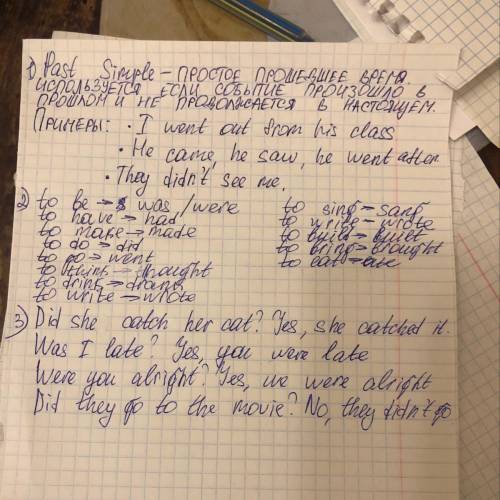 1) Past Simple - ПРОСТОЕ ПРОШЕДШЕЕ ВРЕМЯ.
ИСПОЛЬЗУЕТСЯ ЕСЛИ СОБЫТИЕ ПРОИЗОШЛО В
ПРОШЛОМ И НЕ ПРОДОЛЖАЕТСЯ В НАСТОЯЩЕМ.
ПРИМЕРЫ: • I went out from his class
• He came, he saw, he went after
• They didn't see me.
2) to be → was / were
to have → had
to make → made
to do → did
to go → went
to think → thought
to drink → drank
to write → wrote
to sing → sang
to write → wrote
to built → built
to bring → brought
to eat → ate
3) Did she catch her cat? Yes, she catched it.
Was I late? Yes, you were late
Were you alright? Yes, we were alright
Did they go to the movie? No, they didn't go